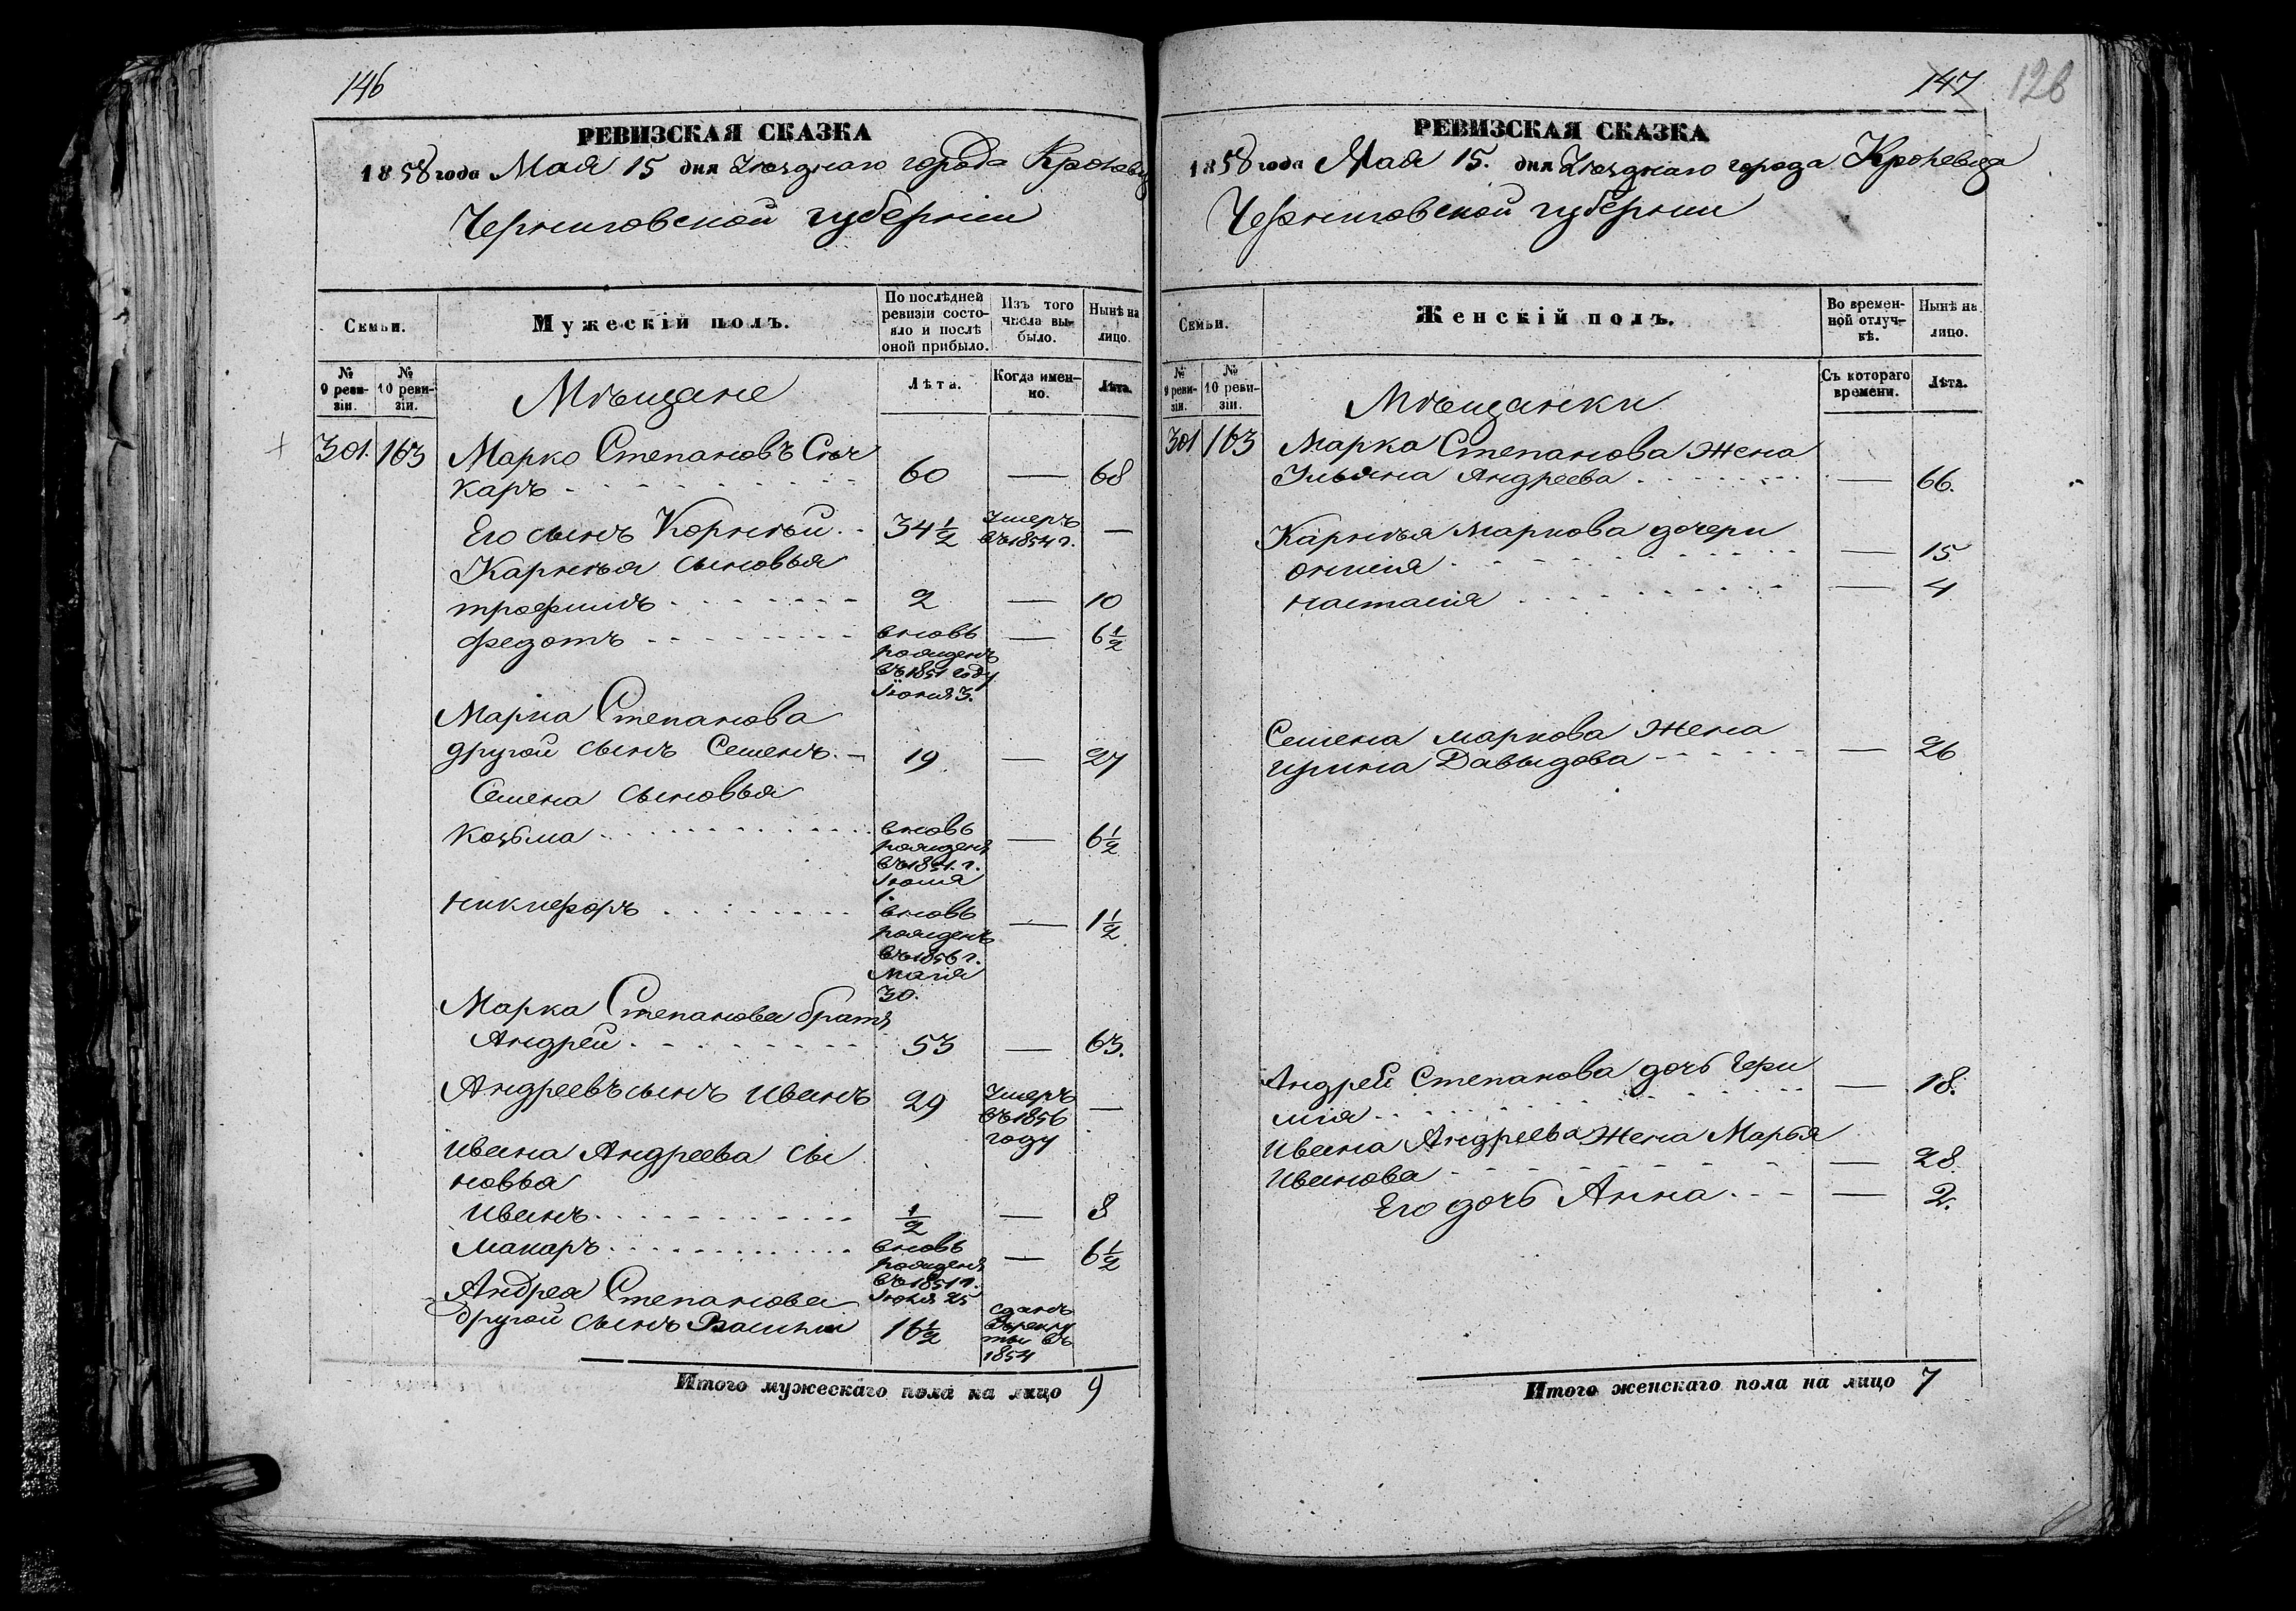 146
РЕВИЗСКАЯ СКАЗКА
1858 года Мая 15 дня Уѣзднаго города Кролевца
Черниговской губерніи
Семьи.
Мужескій полъ.
По послѣдней ревизіи состояло и послѣ оной прибыло.
Изъ того числа выбыло.
Нынѣ на лицо.
№ 9 ревизіи.
№ 10 ревизіи.
Мѣщане
Лѣта.
Когда именно.
Лѣта.
301. 163 Марко Степановъ
каръ 60 — 68
Его сынъ Корнѣй 34½ Умеръ въ 1854 г. —
Карнѣя сыновья
трофимъ 2 — 10
федотъ вновь рожденъ въ 1851 году Іюня 3. — 6½
Марка Степанова
другой сынъ Семенъ 19 — 27
Семена сыновья
Козьма вновь рожденъ въ 1851 г. — 6½
никифоръ вновь рожденъ въ 1856 г. 30. — 1½
Марка Степанова братъ
Андрей 53 — 63.
Андреевъ сынъ иванъ 29 Умеръ въ 1856 году —
ивана Андреева сы
новья
иванъ ½ — 8
макаръ вновь рожденъ въ 1851 г. 25 — 6½
Андрея Степанова
другой сынъ Василий 16½ сданъ въ рекруты въ 1854
Итого мужескаго пола на лицо 9
147 126
РЕВИЗСКАЯ СКАЗКА
1858 года Мая 15. дня Уѣзднаго города Кролевца
Черниговской губерніи
Семьи.
Женскій полъ.
Во временной отлучкѣ.
Нынѣ на лицо.
№ 9 ревизіи.
№ 10 ревизіи.
Мѣщанки
Съ котораго времени.
Лѣта.
301 163 Марка Степанова жена
Ульяна Андреева — 66.
Карнѣя Маркова дочери
— 15
настасія — 4
Семена маркова жена
ирина Давыдова — 26
Андрей Степанова дочь
— 18.
ивана Андреева жена Марья
иванова — 28.
Его дочь Анна — 2.
Итого женскаго пола на лицо 7